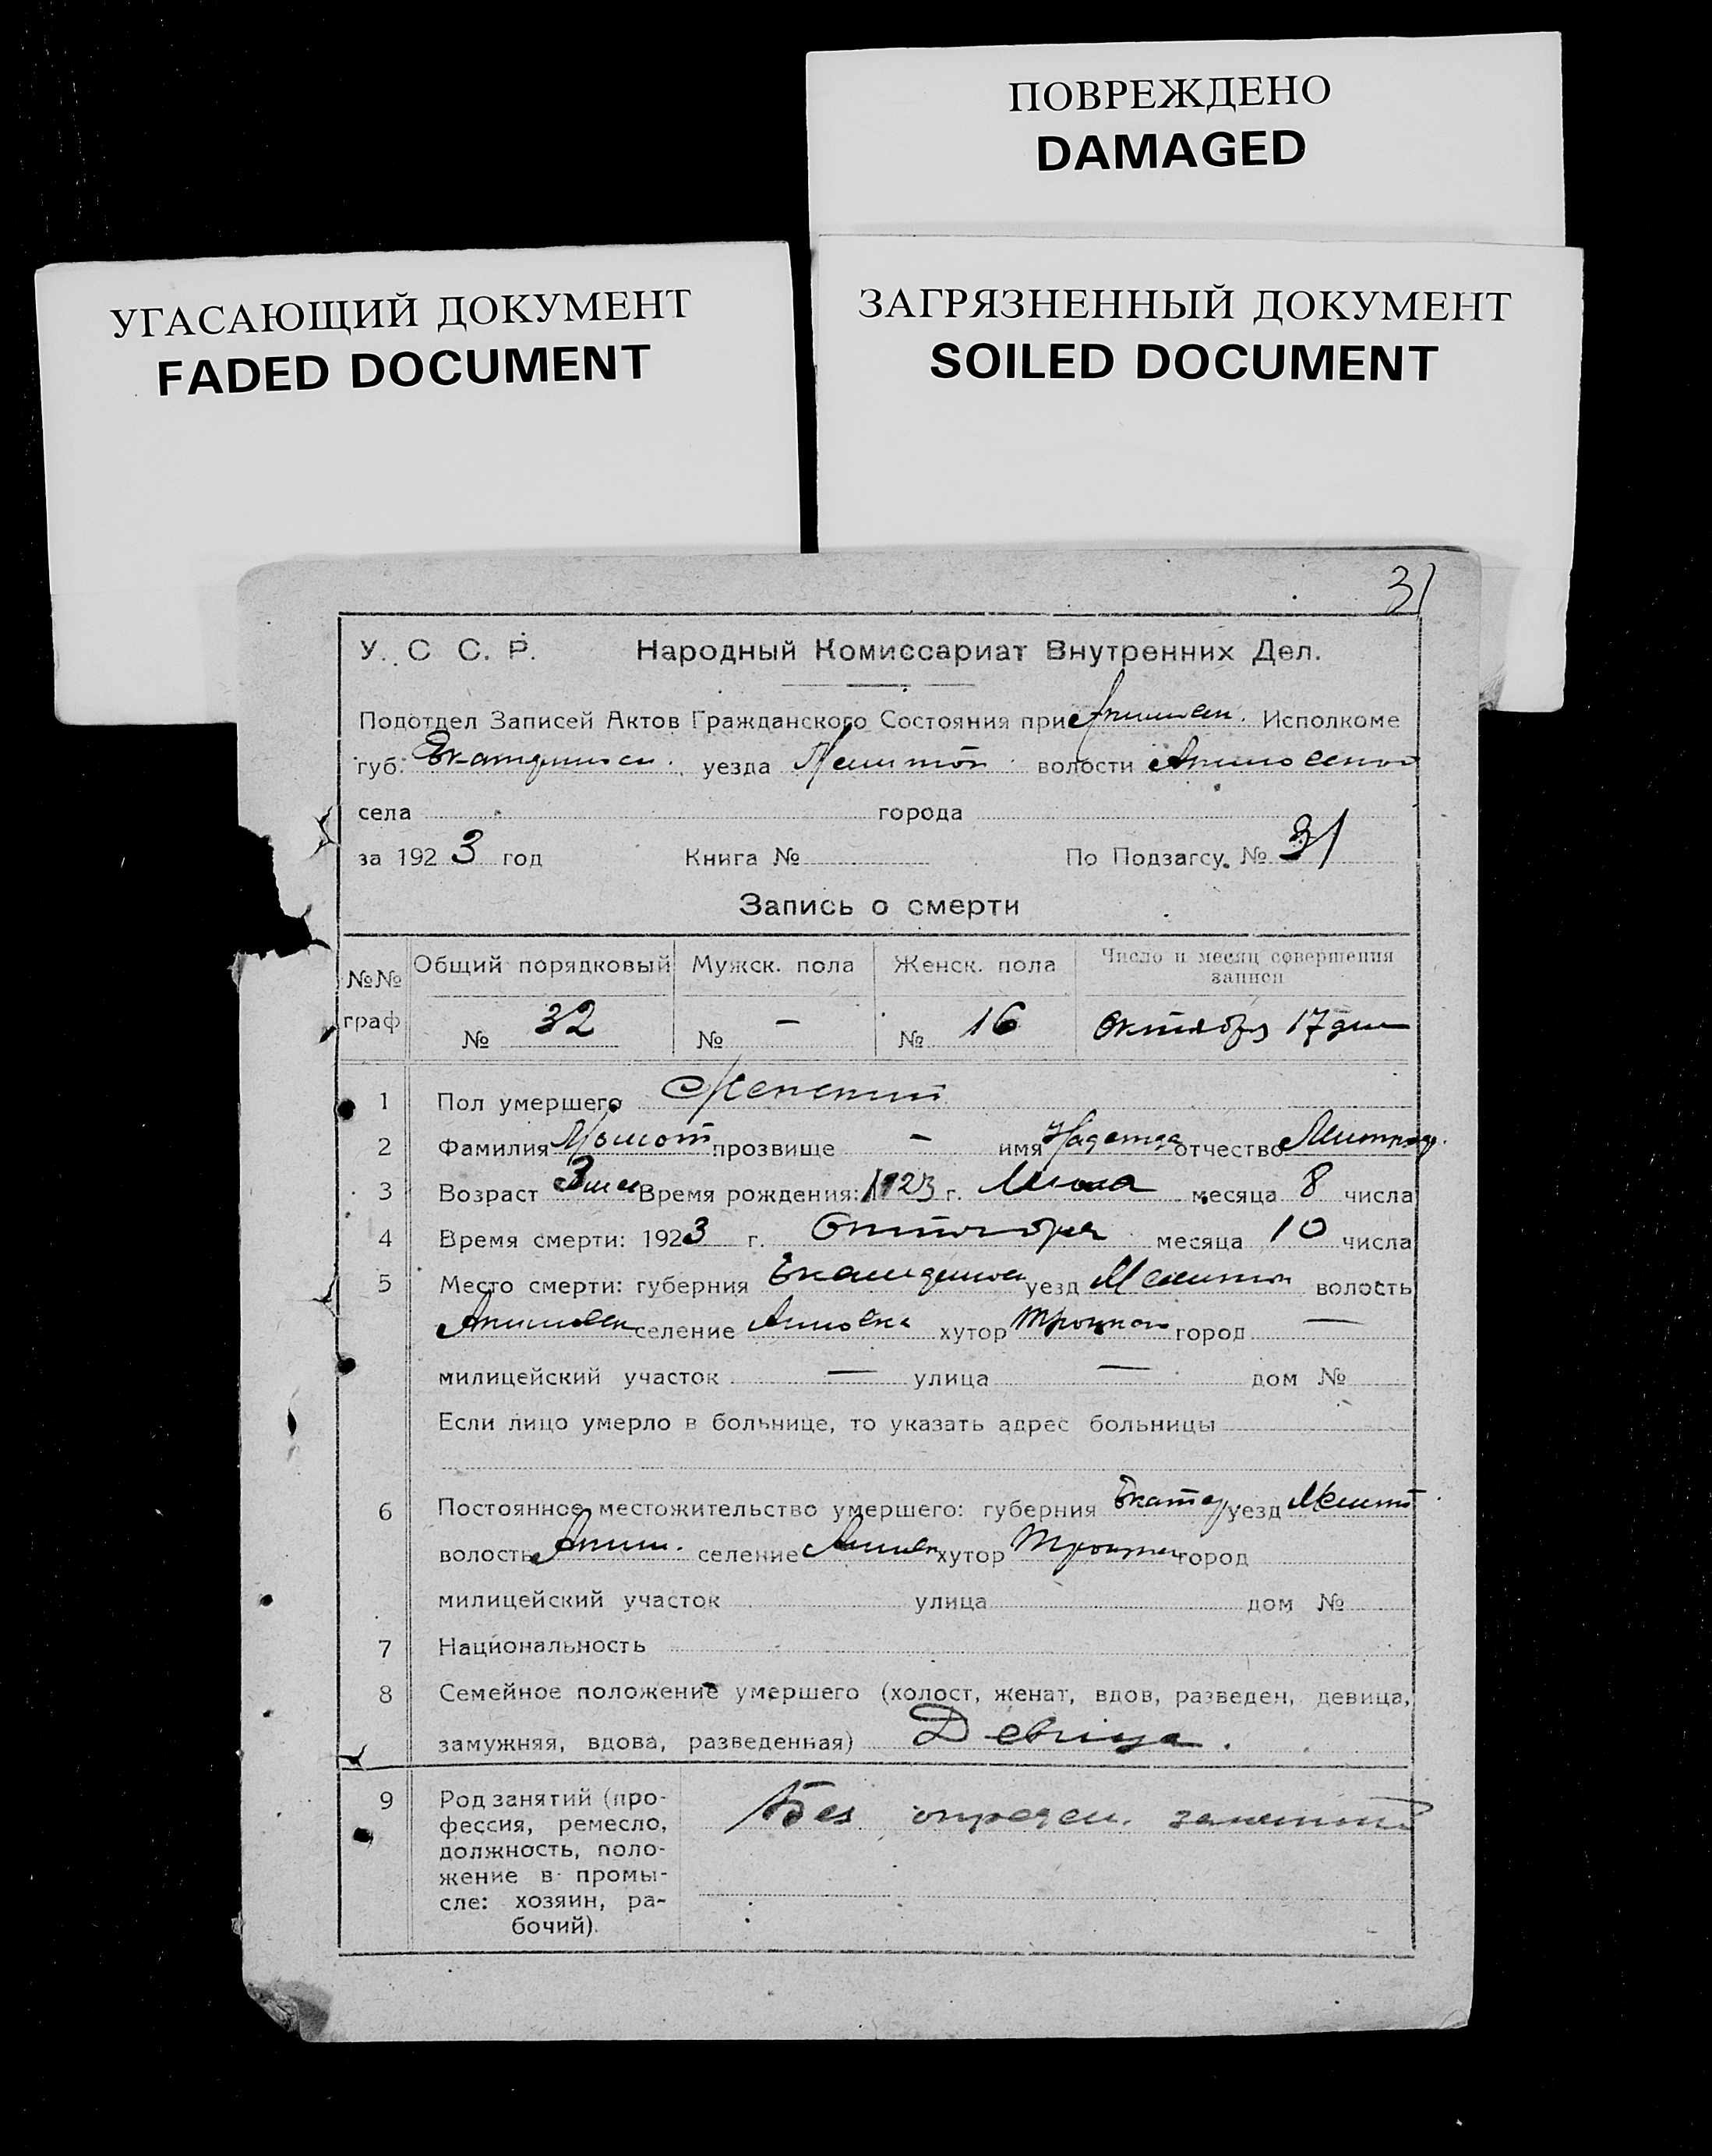 ПОВРЕЖДЕНО
DAMAGED
УГАСАЮЩИЙ ДОКУМЕНТ
FADED DOCUMENT
ЗАГРЯЗНЕННЫЙ ДОКУМЕНТ
SOILED DOCUMENT
31
У. С С. Р. Народный Комиссариат Внутренних Дел.
Подотдел Записей Актов Гражданского Состояния при Исполкоме
губ. уезда Мелитоп. волости
села города
за 1923 год Книга № По Подзагсу. № 31
Запись о смерти
№№ граф Общий порядковый Мужск. пола Женск. пола Число и месяц совершения записи
№ 32 № — № 16 Октября 17 дня
1 Пол умершего Женский
2 Фамилия прозвище — имя Надежда отчество
3 Возраст 3 Время рождения: 1923 г. месяца 8 числа
4 Время смерти: 1923 г. Октября месяца 10 числа
5 Место смерти: губерния уезд волость
селение хутор город —
милицейский участок — улица — дом №
Если лицо умерло в больнице, то указать адрес больницы
6 Постоянное местожительство умершего: губерния Екатер уезд Мелит
волость Аким. селение хутор город
милицейский участок улица дом №
7 Национальность
8 Семейное положение умершего (холост, женат, вдов, разведен, девица,
замужняя, вдова, разведенная) Девица.
9 Род занятий (про-
фессия, ремесло,
должность, поло-
жение в промы-
сле: хозяин, ра-
бочий).
Без определ. занятий